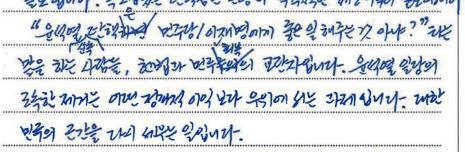 "윤석열 탄핵은 민주당/이재명에게 좋은 일 해주는 것 아냐?"라는
말을 하는 사람들, 헌법과 민주 의 교란자입니다. 윤석열 일당의
조속한 제거는 어떤 정치적 이익보다 우위에 서는 과제입니다. 대한
민국의 근간을 다시 세우는 일입니다.